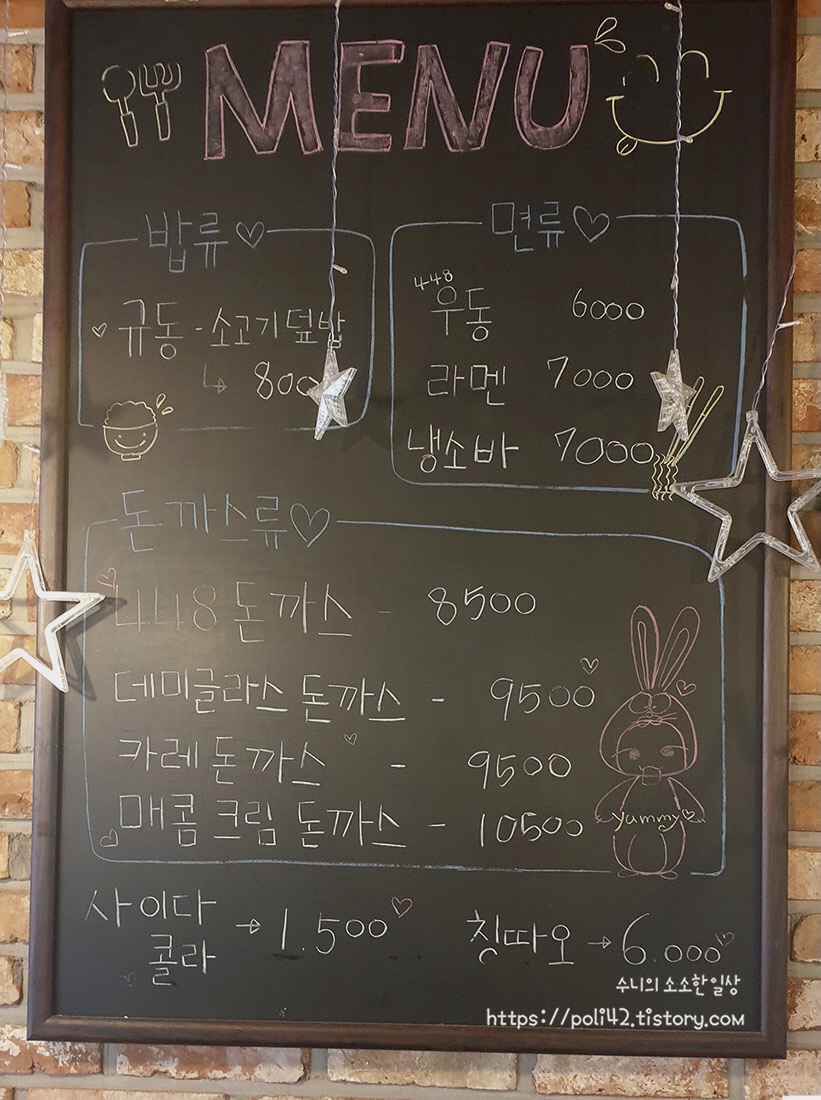 MENU
밥류
규동 - 소고기덮밥
↳ 800
면류
448
우동 6000
라멘 7000
냉소바 7000
돈까스류
448돈까스 - 8500
데미글라스 돈까스 - 9500
카레돈까스 - 9500
매콤크림돈까스 - 10500
yummy
사이다
콜라 → 1.500
칭따오 → 6.000
수니의 소소한일상
https://poli42.tistory.com